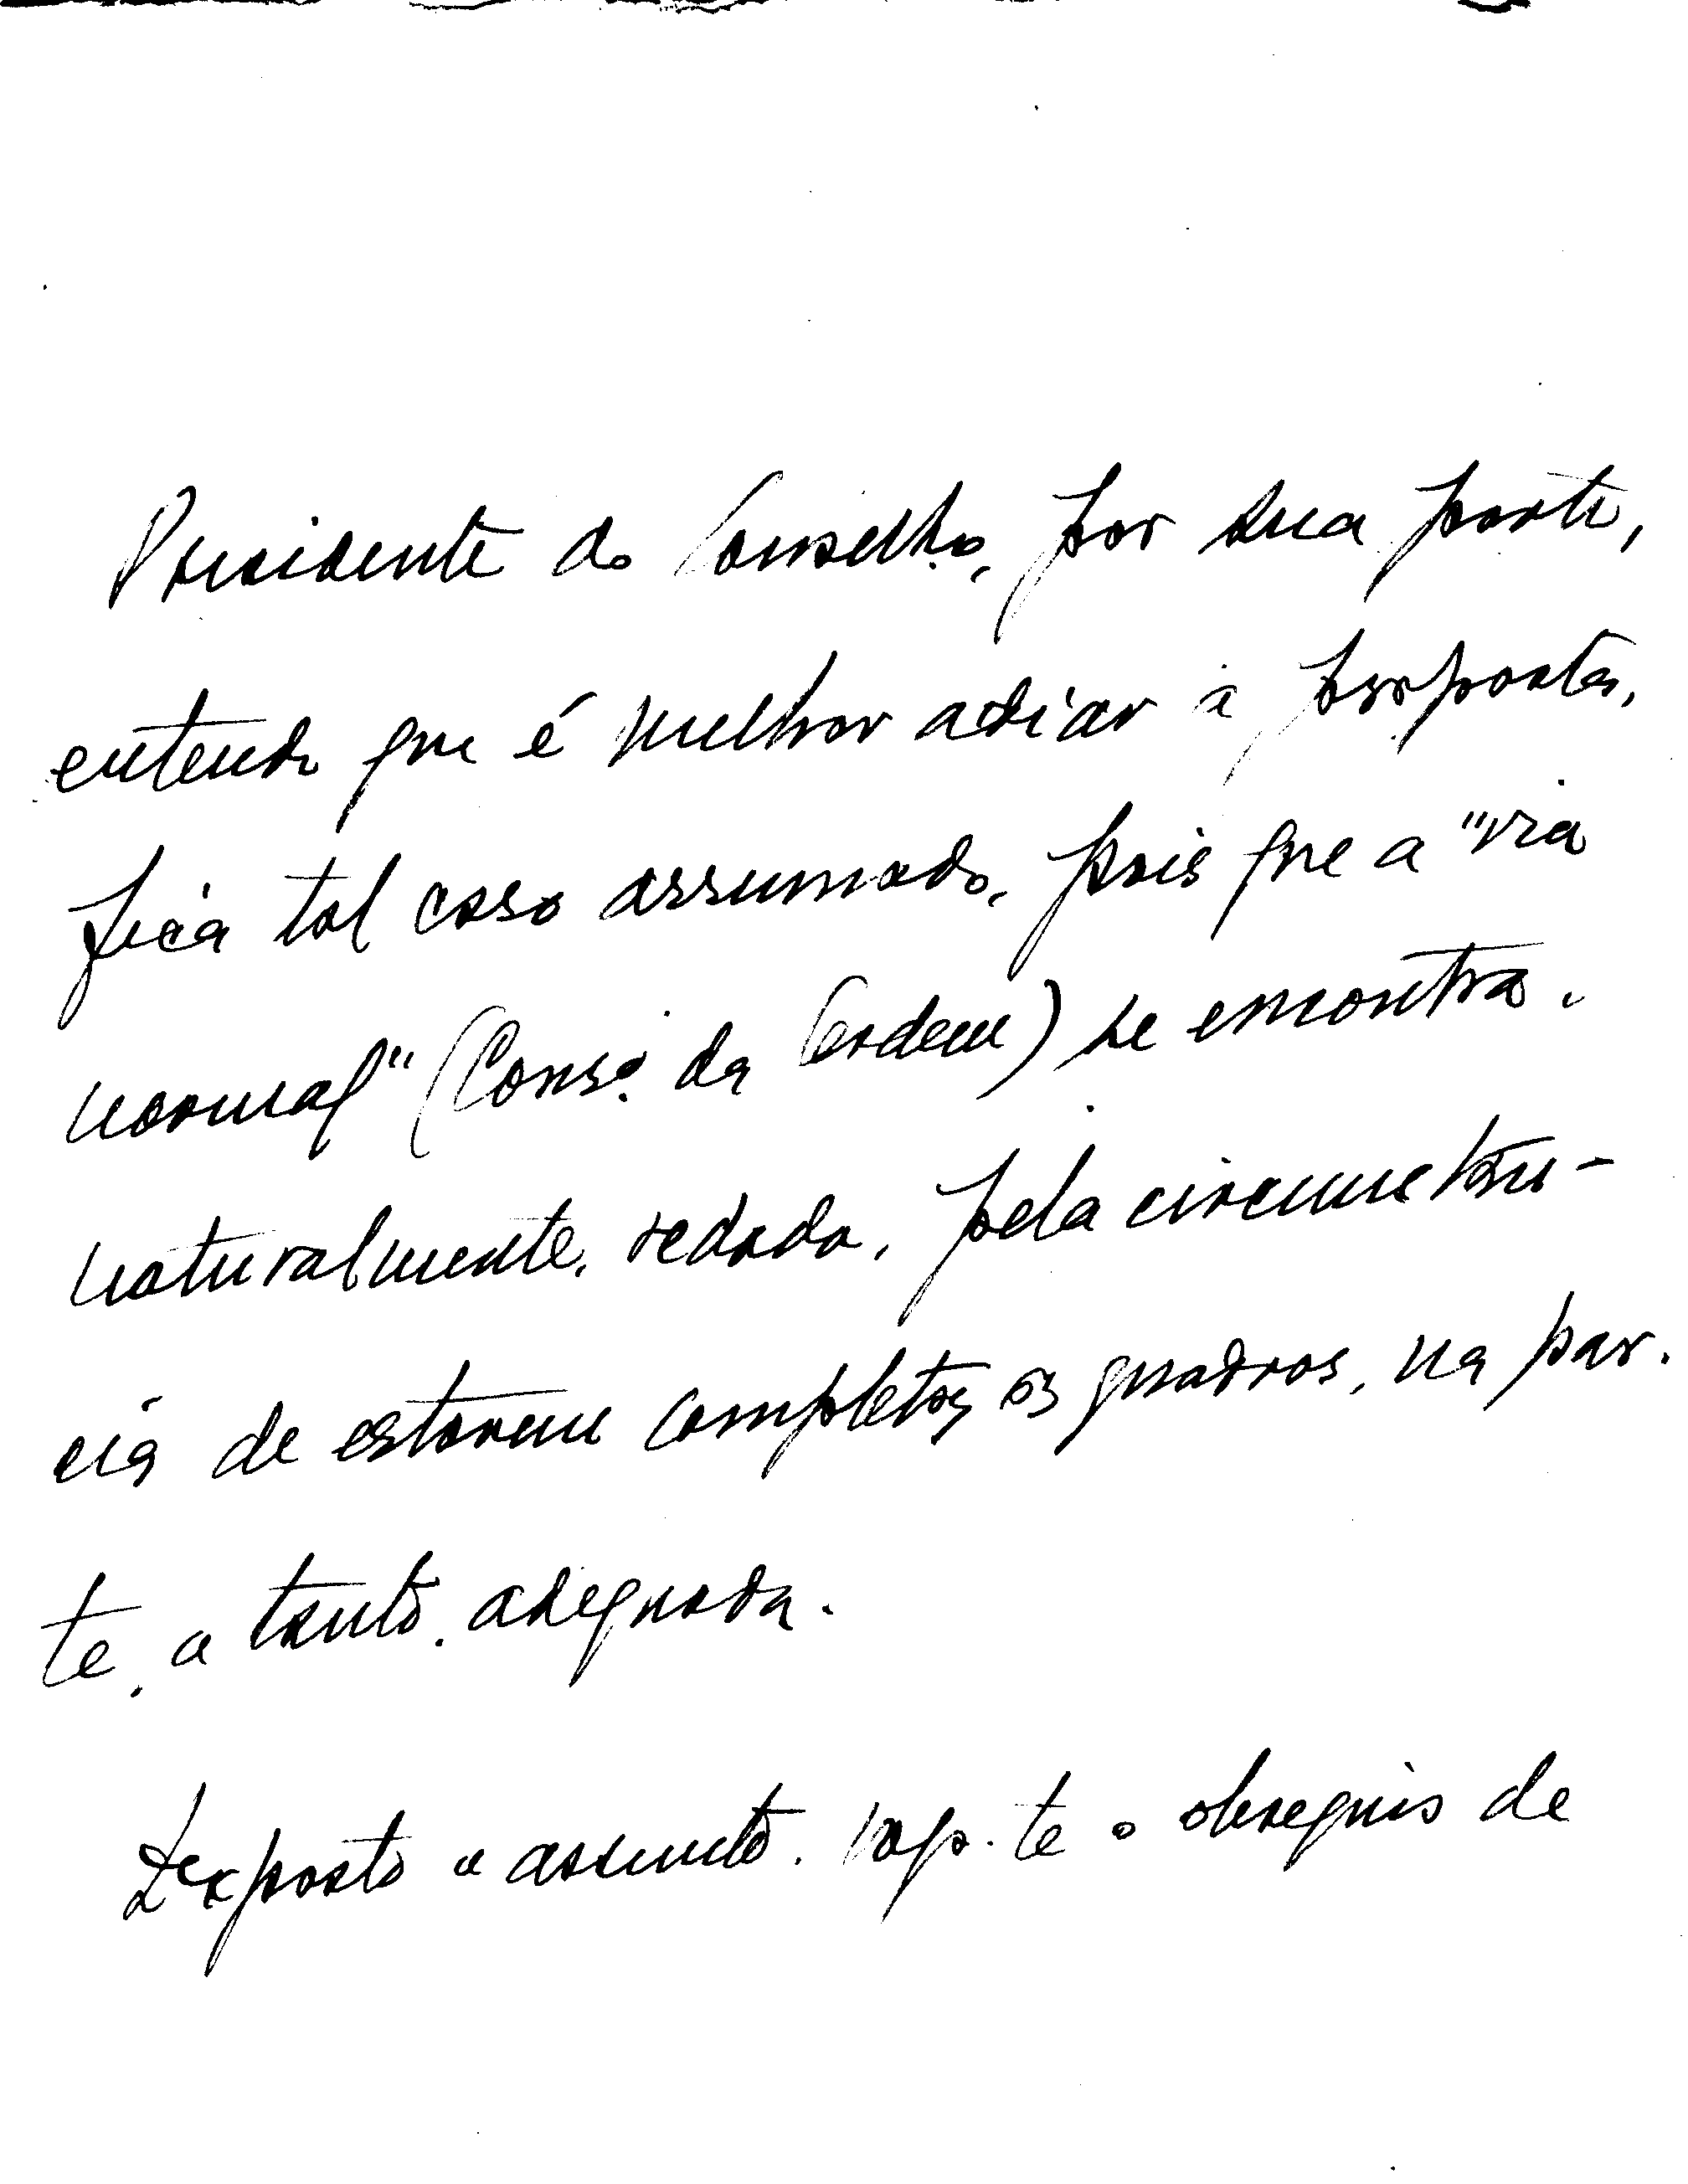 Presidente do Conselho, por sua parte,
entende que é melhor adiar a proposta,
fica tal caso arrumado, pois que a "via
normal" (Cons.º da Ordem) se encontra,
naturalmente, vedada, pela circunstân-
cia de estarem completos os quadros, na par-
te, a tanto, adequada.
Exposto o assunto, rogo-te o obsequio de